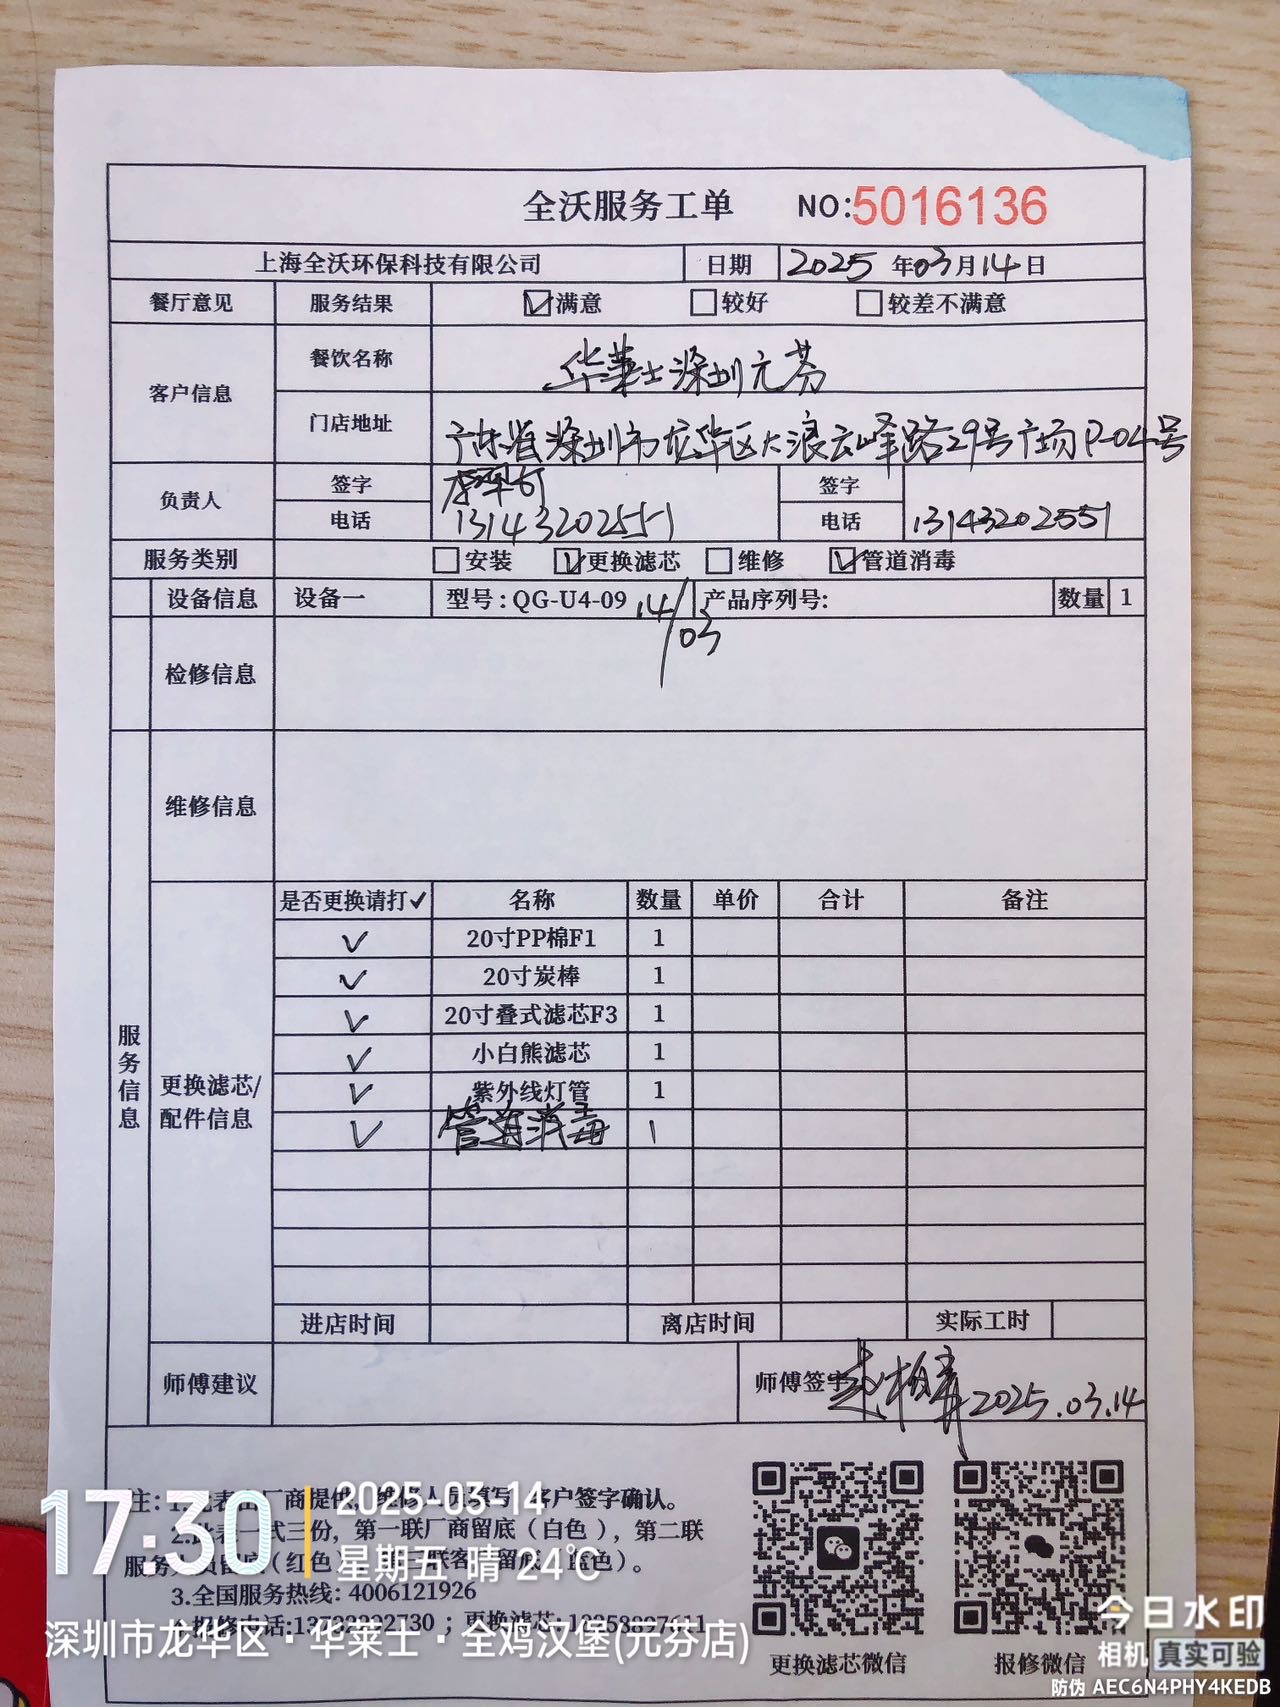 全沃服务工单 NO:5016136
上海全沃环保科技有限公司 日期 2025年03月14日
餐厅意见 服务结果 ☑满意 □较好 □较差不满意
客户信息 餐饮名称 华莱士深圳元芬
门店地址 广东省深圳市龙华区大浪云峰路29号广场P-04号
负责人 签字 签字
电话 13143202551 电话 13143202551
服务类别 □安装 ☑更换滤芯 □维修 ☑管道消毒
设备信息 设备一 型号:QG-U4-09 产品序列号: 数量 1
14/03
检修信息
维修信息
服务信息
更换滤芯/
配件信息
是否更换请打✓ 名称 数量 单价 合计 备注
✓ 20寸PP棉F1 1
✓ 20寸炭棒 1
✓ 20寸叠式滤芯F3 1
✓ 小白熊滤芯 1
✓ 紫外线灯管 1
✓ 管道消毒 1
进店时间 离店时间 实际工时
师傅建议 师傅签字 2025.03.14
客户签字确认。
2.此表一式三份，第一联厂商留底（白色），第二联
3.全国服务热线: 4006121926
更换滤芯微信 报修微信
17:30
2025-03-14
星期五 晴 24℃
深圳市龙华区·华莱士·全鸡汉堡(元芬店)
今日水印
相机 真实可验
防伪 AEC6N4PHY4KEDB